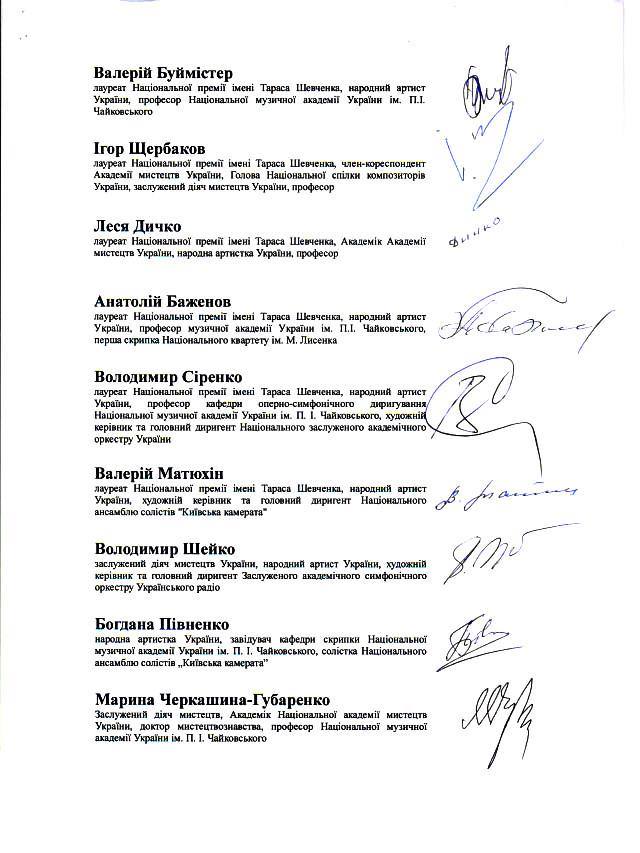 Валерій Буймістер
лауреат Національної премії імені Тараса Шевченка, народний артист
України, професор Національної музичної академії України ім. П.І.
Чайковського
Ігор Щербаков
лауреат Національної премії імені Тараса Шевченка, член-кореспондент
Академії мистецтв України, Голова Національної спілки композиторів
України, заслужений діяч мистецтв України, професор
Леся Дичко
лауреат Національної премії імені Тараса Шевченка, Академік Академії
мистецтв України, народна артистка України, професор
Анатолій Баженов
лауреат Національної премії імені Тараса Шевченка, народний артист
України, професор музичної академії України ім. П.І. Чайковського,
перша скрипка Національного квартету ім. М. Лисенка
Володимир Сіренко
лауреат Національної премії імені Тараса Шевченка, народний артист
України, професор кафедри оперно-симфонічного диригування
Національної музичної академії України ім. П. І. Чайковського, художній
керівник та головний диригент Національного заслуженого академічного
оркестру України
Валерій Матюхін
лауреат Національної премії імені Тараса Шевченка, народний артист
України, художній керівник та головний диригент Національного
ансамблю солістів "Київська камерата"
Володимир Шейко
заслужений діяч мистецтв України, народний артист України, художній
керівник та головний диригент Заслуженого академічного симфонічного
оркестру Українського радіо
Богдана Півненко
народна артистка України, завідувач кафедри скрипки Національної
музичної академії України ім. П. І. Чайковського, солістка Національного
ансамблю солістів „Київська камерата”
Марина Черкашина-Губаренко
Заслужений діяч мистецтв, Академік Національної академії мистецтв
України, доктор мистецтвознавства, професор Національної музичної
академії України ім. П. І. Чайковського